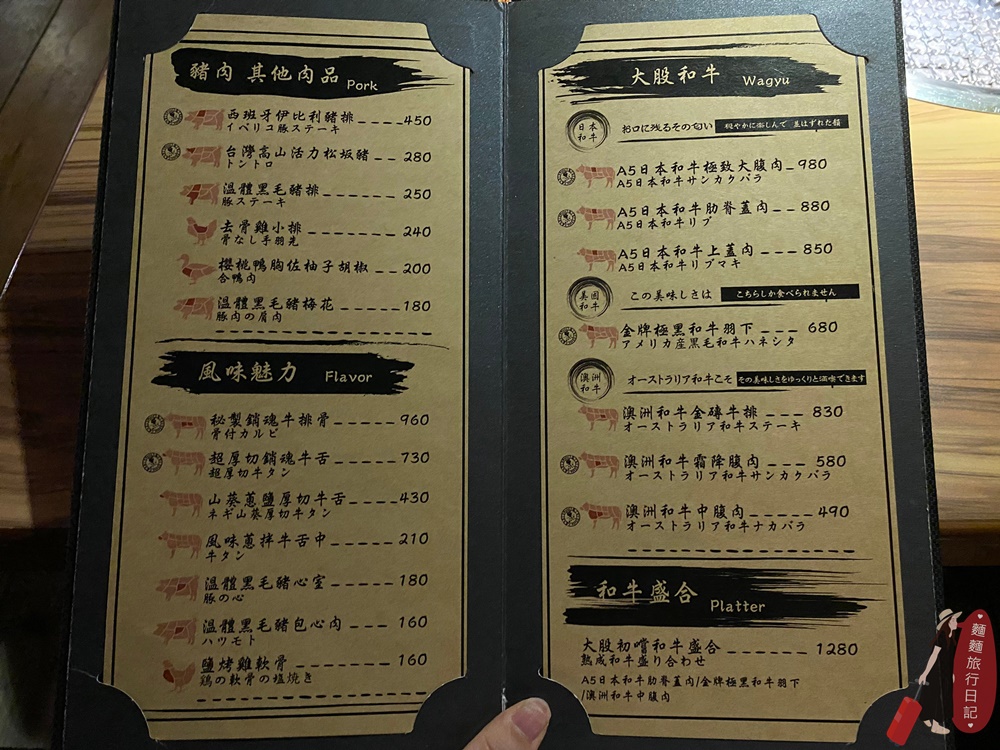 豬肉 其他肉品 Pork
西班牙伊比利豬排-----450
イベリコ豚ステーキ
台灣高山活力松坂豬---280
トントロ
溫體黑毛豬排------250
豚ステーキ
去骨雞小排-------240
骨なし手羽先
櫻桃鴨胸佐柚子胡椒---200
合鴨肉
溫體黑毛豬梅花-----180
豚肉の肩肉
風味魅力 Flavor
秘製銷魂牛排骨------960
骨付カルビ
超厚切銷魂牛舌------730
超厚切牛タン
山葵蔥鹽厚切牛舌-----430
ネギ山葵厚切牛タン
風味蔥拌牛舌中------210
牛タン
溫體黑毛豬心室------180
豚の心
溫體黑毛豬包心肉-----160
ハツモト
鹽烤雞軟骨--------160
鶏の軟骨の塩焼き
大股和牛 Wagyu
日本和牛 お口に残るその匂い
A5日本和牛極致大腹肉-980
A5日本和牛サンカクバラ
A5日本和牛肋脊蓋肉--880
A5日本和牛リブ
A5日本和牛上蓋肉---850
A5日本和牛リブマキ
美国和牛 この美味しさは こちらしか食べられません
金牌極黑和牛羽下---680
アメリカ産黒毛和牛ハネシタ
澳洲和牛 オーストラリア和牛こそ その美味しさをゆっくりと満喫できます
澳洲和牛金磚牛排----830
オーストラリア和牛ステーキ
澳洲和牛霜降腹肉----580
オーストラリア和牛サンカクバラ
澳洲和牛中腹肉-----490
オーストラリア和牛ナカバラ
和牛盛合 Platter
大股初嚐和牛盛合-------1280
熟成和牛盛り合わせ
A5日本和牛肋脊蓋肉/金牌極黑和牛羽下
/澳洲和牛中腹肉
麵麵旅行日記